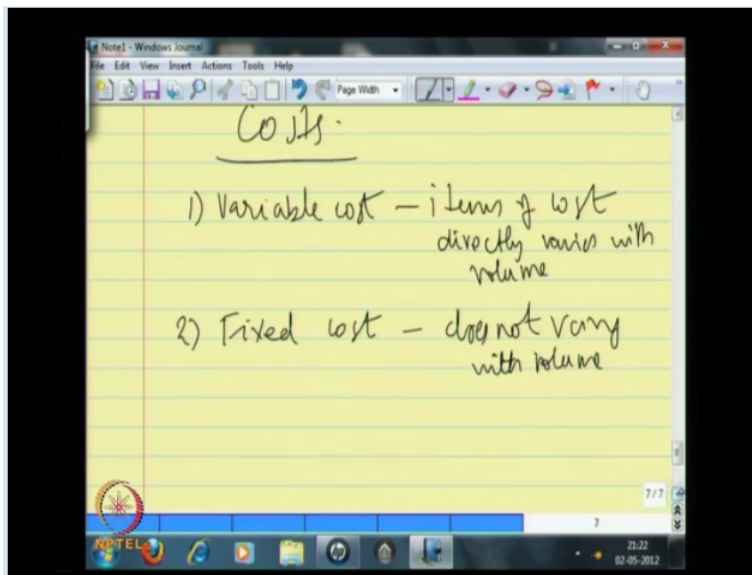 Note1 - Windows Journal
File Edit View Insert Actions Tools Help
Page Width
Costs.
1) Variable cost - items of cost
directly varies with
volume
2) Fixed cost - does not vary
with volume
7/7
7
NPTEL
21:22
02-05-2012